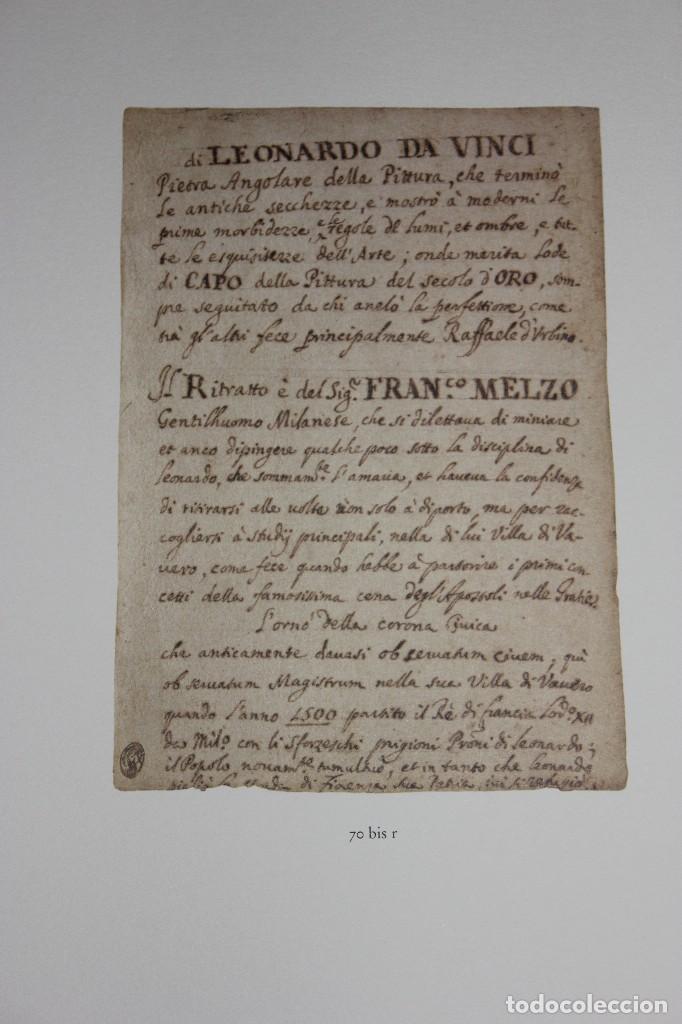 di LEONARDO DA VINCI
Pietra Angolare della Pittura, che terminò
le antiche secchezze, e mostrò à moderni le
prime morbidezze, e le regole de lumi, et ombre, e tut-
te le esquisitezze dell'Arte; onde merita lode
di CAPO della Pittura del secolo d'ORO, sem-
pre seguitato da chi anelò la perfettione, come
trà gl'altri fece principalmente Raffaele d'Urbino.
Il Ritratto è del Sig.r FRAN.co MELZO
Gentilhuomo Milanese, che si dilettava di miniare
et anco dipingere qualche poco sotto la disciplina di
Leonardo, che sommam.te l'amava, et haveva la confidenza
di ritirarsi alle volte non solo à diporto, ma per rac-
cogliersi à studij principali, nella di lui Villa di Va-
vero, come fece quando hebbe à partorire i primi con-
cetti della famosissima cena degl'Apostoli nelle Gratie
L'ornò della corona Civica
che anticamente davasi ob servatum civem, quì
ob servatum Magistrum nella sua Villa di Vavero
quando l'anno 1500 partito il Rè di francia Lod.o XII
da Mil.o con li Sforzeschi prigioni Proni di leonardo;
il Popolo novam.te tumultuò, et in tanto che leonardo
di Fiorenza sua Patria, ivi si refugiò
70 bis r
todocoleccion